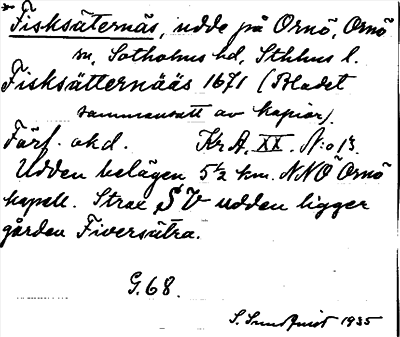 * Fisksäternäs, udde på Ornö, Ornö
sn, Sotholms hd, Sthlms l.
Fisksätternääs 1671 (Bladet
sammansatt av kopior).
Färf. okd. Kr A. XX. N:o 13.
Udden belägen 5½ km. NNO Ornö
kapell. Strax SV udden ligger
gården Fiversätra.
G. 68.
S. Sundqvist 1935